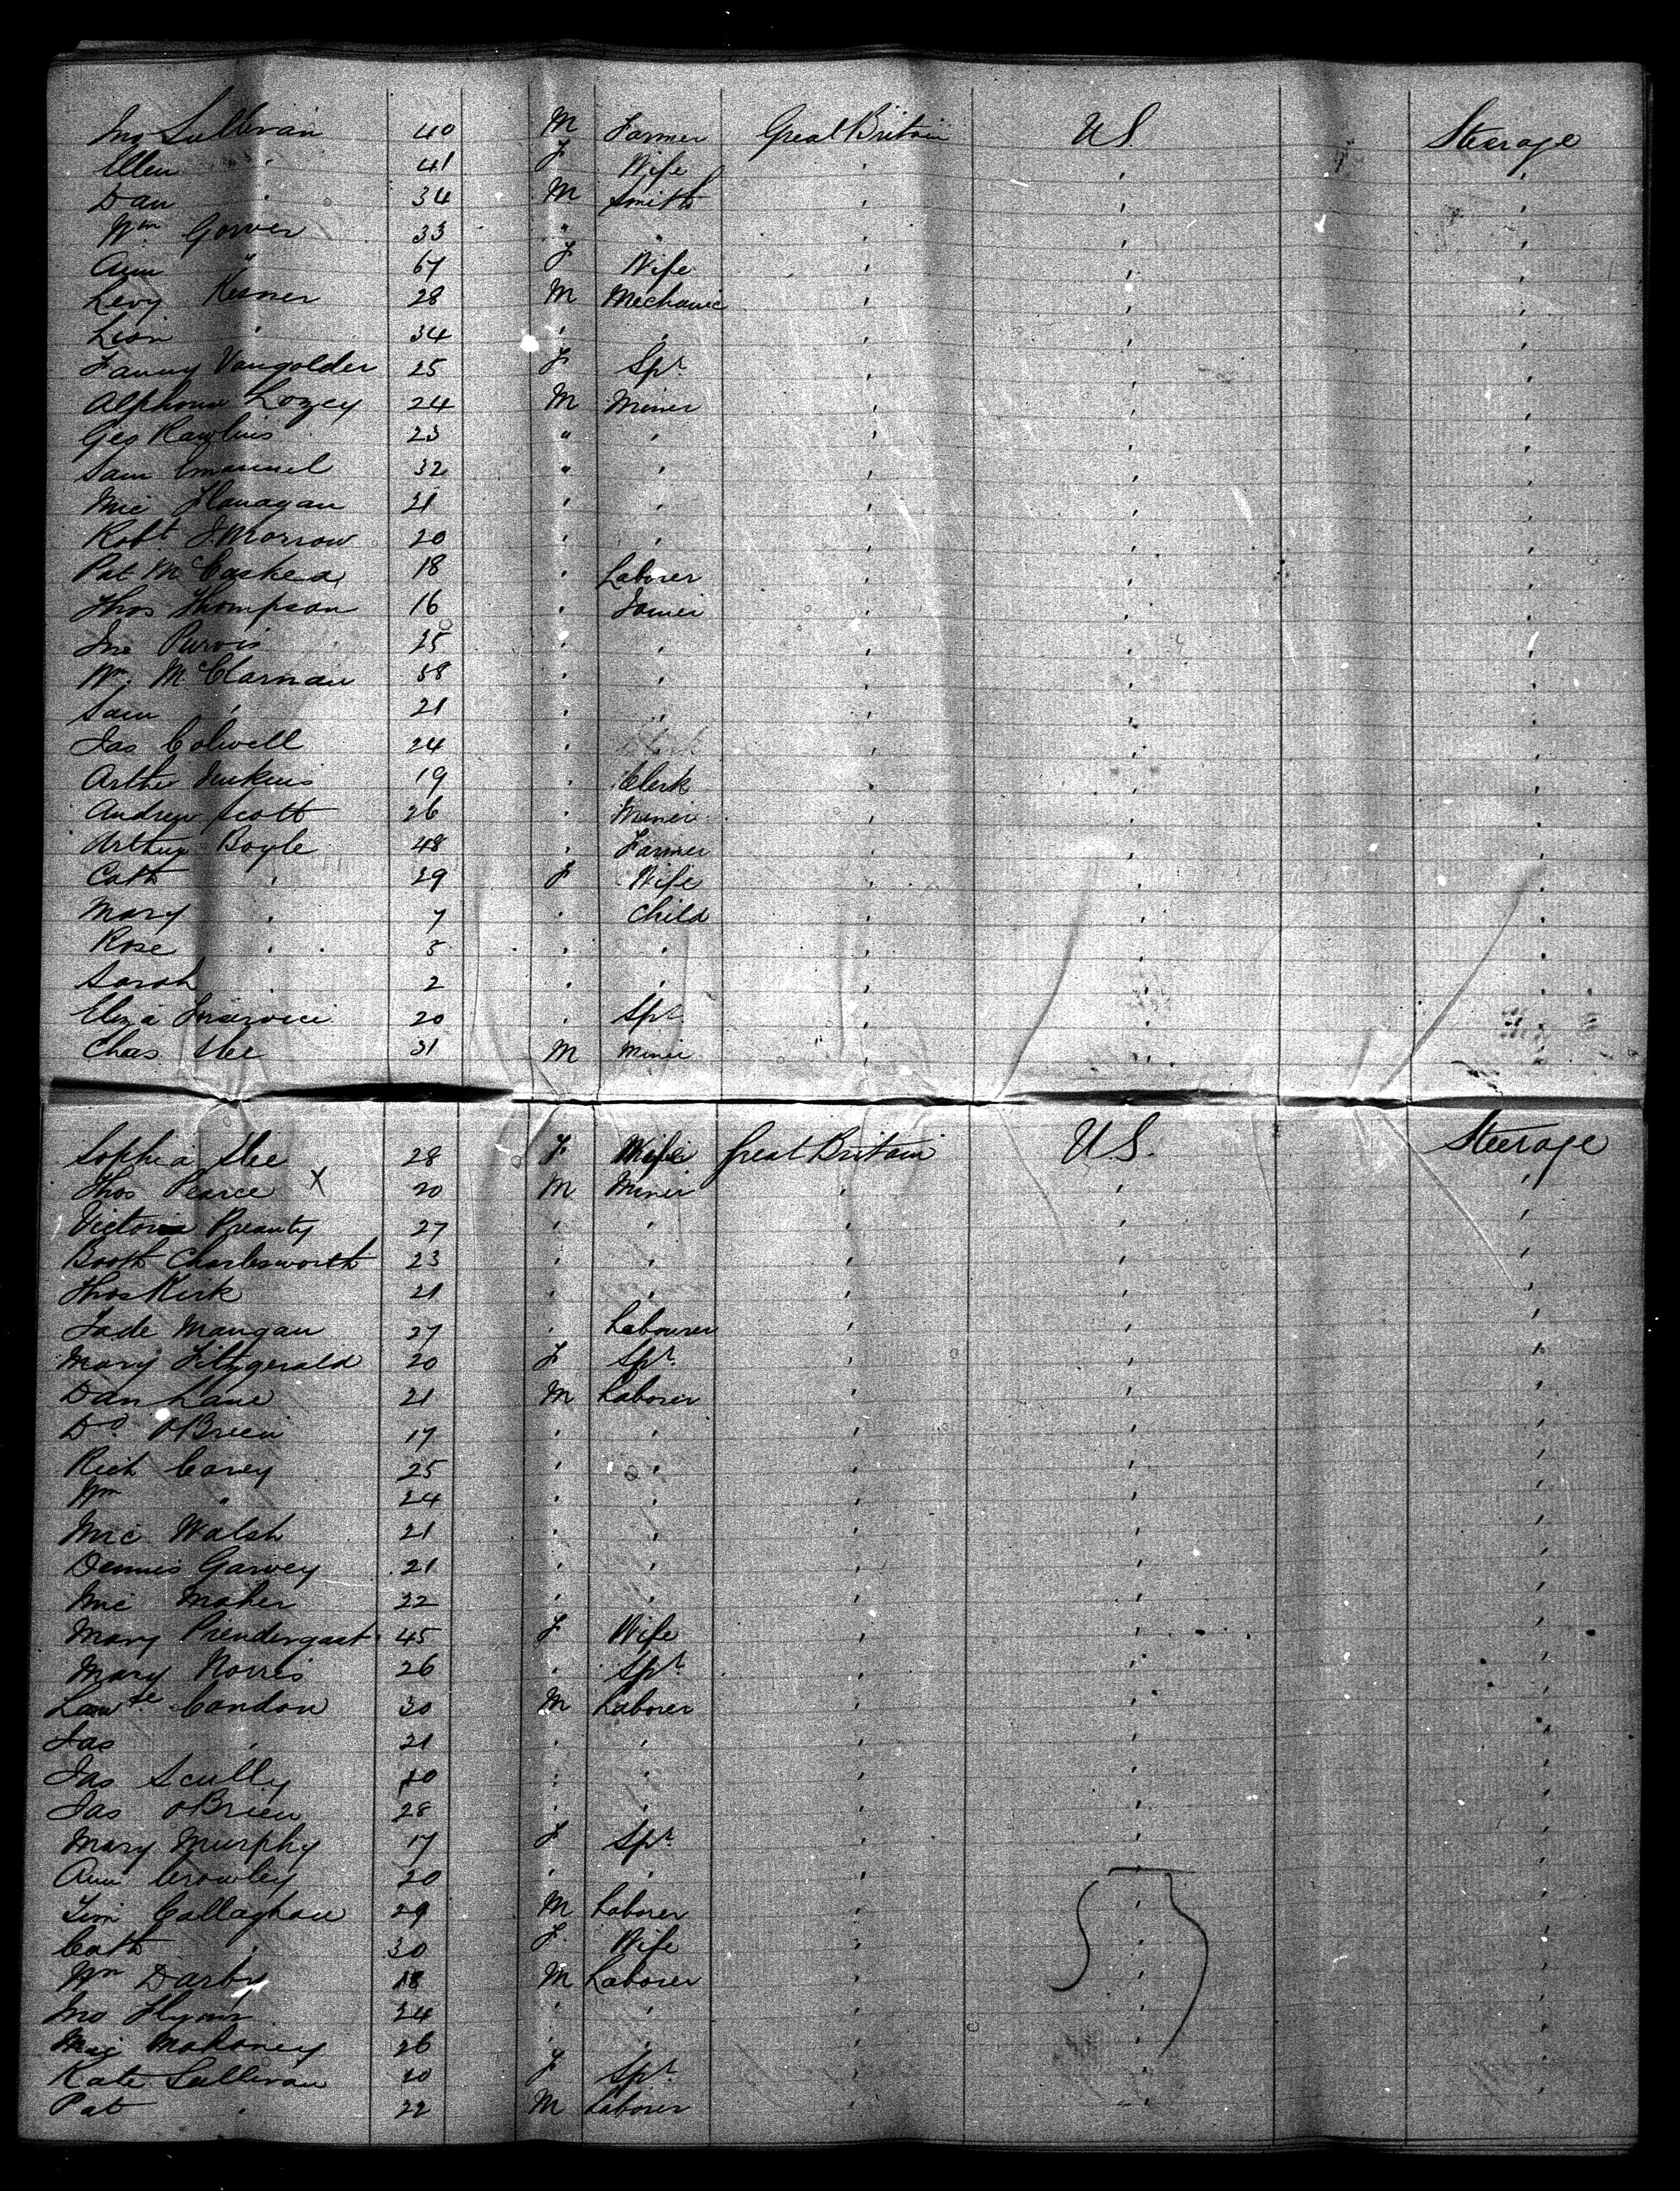 Jno Sullivan 40 M Farmer Great Britain U S. Steerage
Ellen " 41 F Wife " " "
Dan " 34 M Smith " " "
Wm Gower 33 " " " " "
Ann " 67 F Wife " " "
Levy Kesner 28 M Mechanic " " "
Lion " 34 " " " " "
Fanny Vangolder 25 F Spr " " "
Alphonse Lozey 24 M Miner " " "
Geo Rawlins 23 " " " " "
Sam Emanuel 32 " " " " "
Mic Flanagan 21 " " " " "
Robt J. Morrow 20 " " " " "
Pat McCasked 18 " Laborer " " "
Thos Thompson 16 " " " "
Jno Purvis 25 " " " " "
Wm McClarnan 38 " " " " "
Sam " 21 " " " " "
Jas Colwell 24 " " " "
Arthr Jenkins 19 " Clerk " " "
Andrew Scott 26 " Miner " " "
Arthur Boyle 48 " Farmer " " "
Cath " 29 F Wife " " "
Mary " 7 " Child " " "
Rose " 5 " " " " "
Sarah " 2 " " " " "
Eliza 20 " Spr " " "
Chas Slee 31 M Miner " " "
Sophia Slee 28 F Wife Great Britain U.S. Steerage
Thos Pearce X 20 M Miner " " "
Victoria Preauty 27 " " " " "
Booth Charlesworth 23 " " " " "
Thos Kirk 21 " " " " "
Jade Mangan 27 " Labourer " " "
Mary Fitzgerald 20 F Spr " " "
Dan Lane 21 M Laborer " " "
Dd OBrien 17 " " " " "
Rich Carey 25 " " " " "
Wm " 24 " " " " "
Mic Walsh 21 " " " " "
Dennis Garvey 21 " " " " "
Mic Maher 22 " " " " "
Mary Prendergast 45 F Wife " " "
Mary Norris 26 " Spr " " "
Lawce Condon 30 M Laborer " " "
Jas " 21 " " " " "
Jas Scully 20 " " " " "
Jas OBrien 28 " " " " "
Mary Murphy 17 F Spr " " "
Ann Crowley 20 " " " " "
Tim Callaghan 29 M Laborer " " "
Cath " 30 F. Wife " " "
Wm Darby 18 M Laborer " " "
Jno Flynn 24 " " " " "
Mic Mahoney 26 " " " " "
Kate Sullivan 20 F Spr " " "
Pat " 22 M Laborer " " "